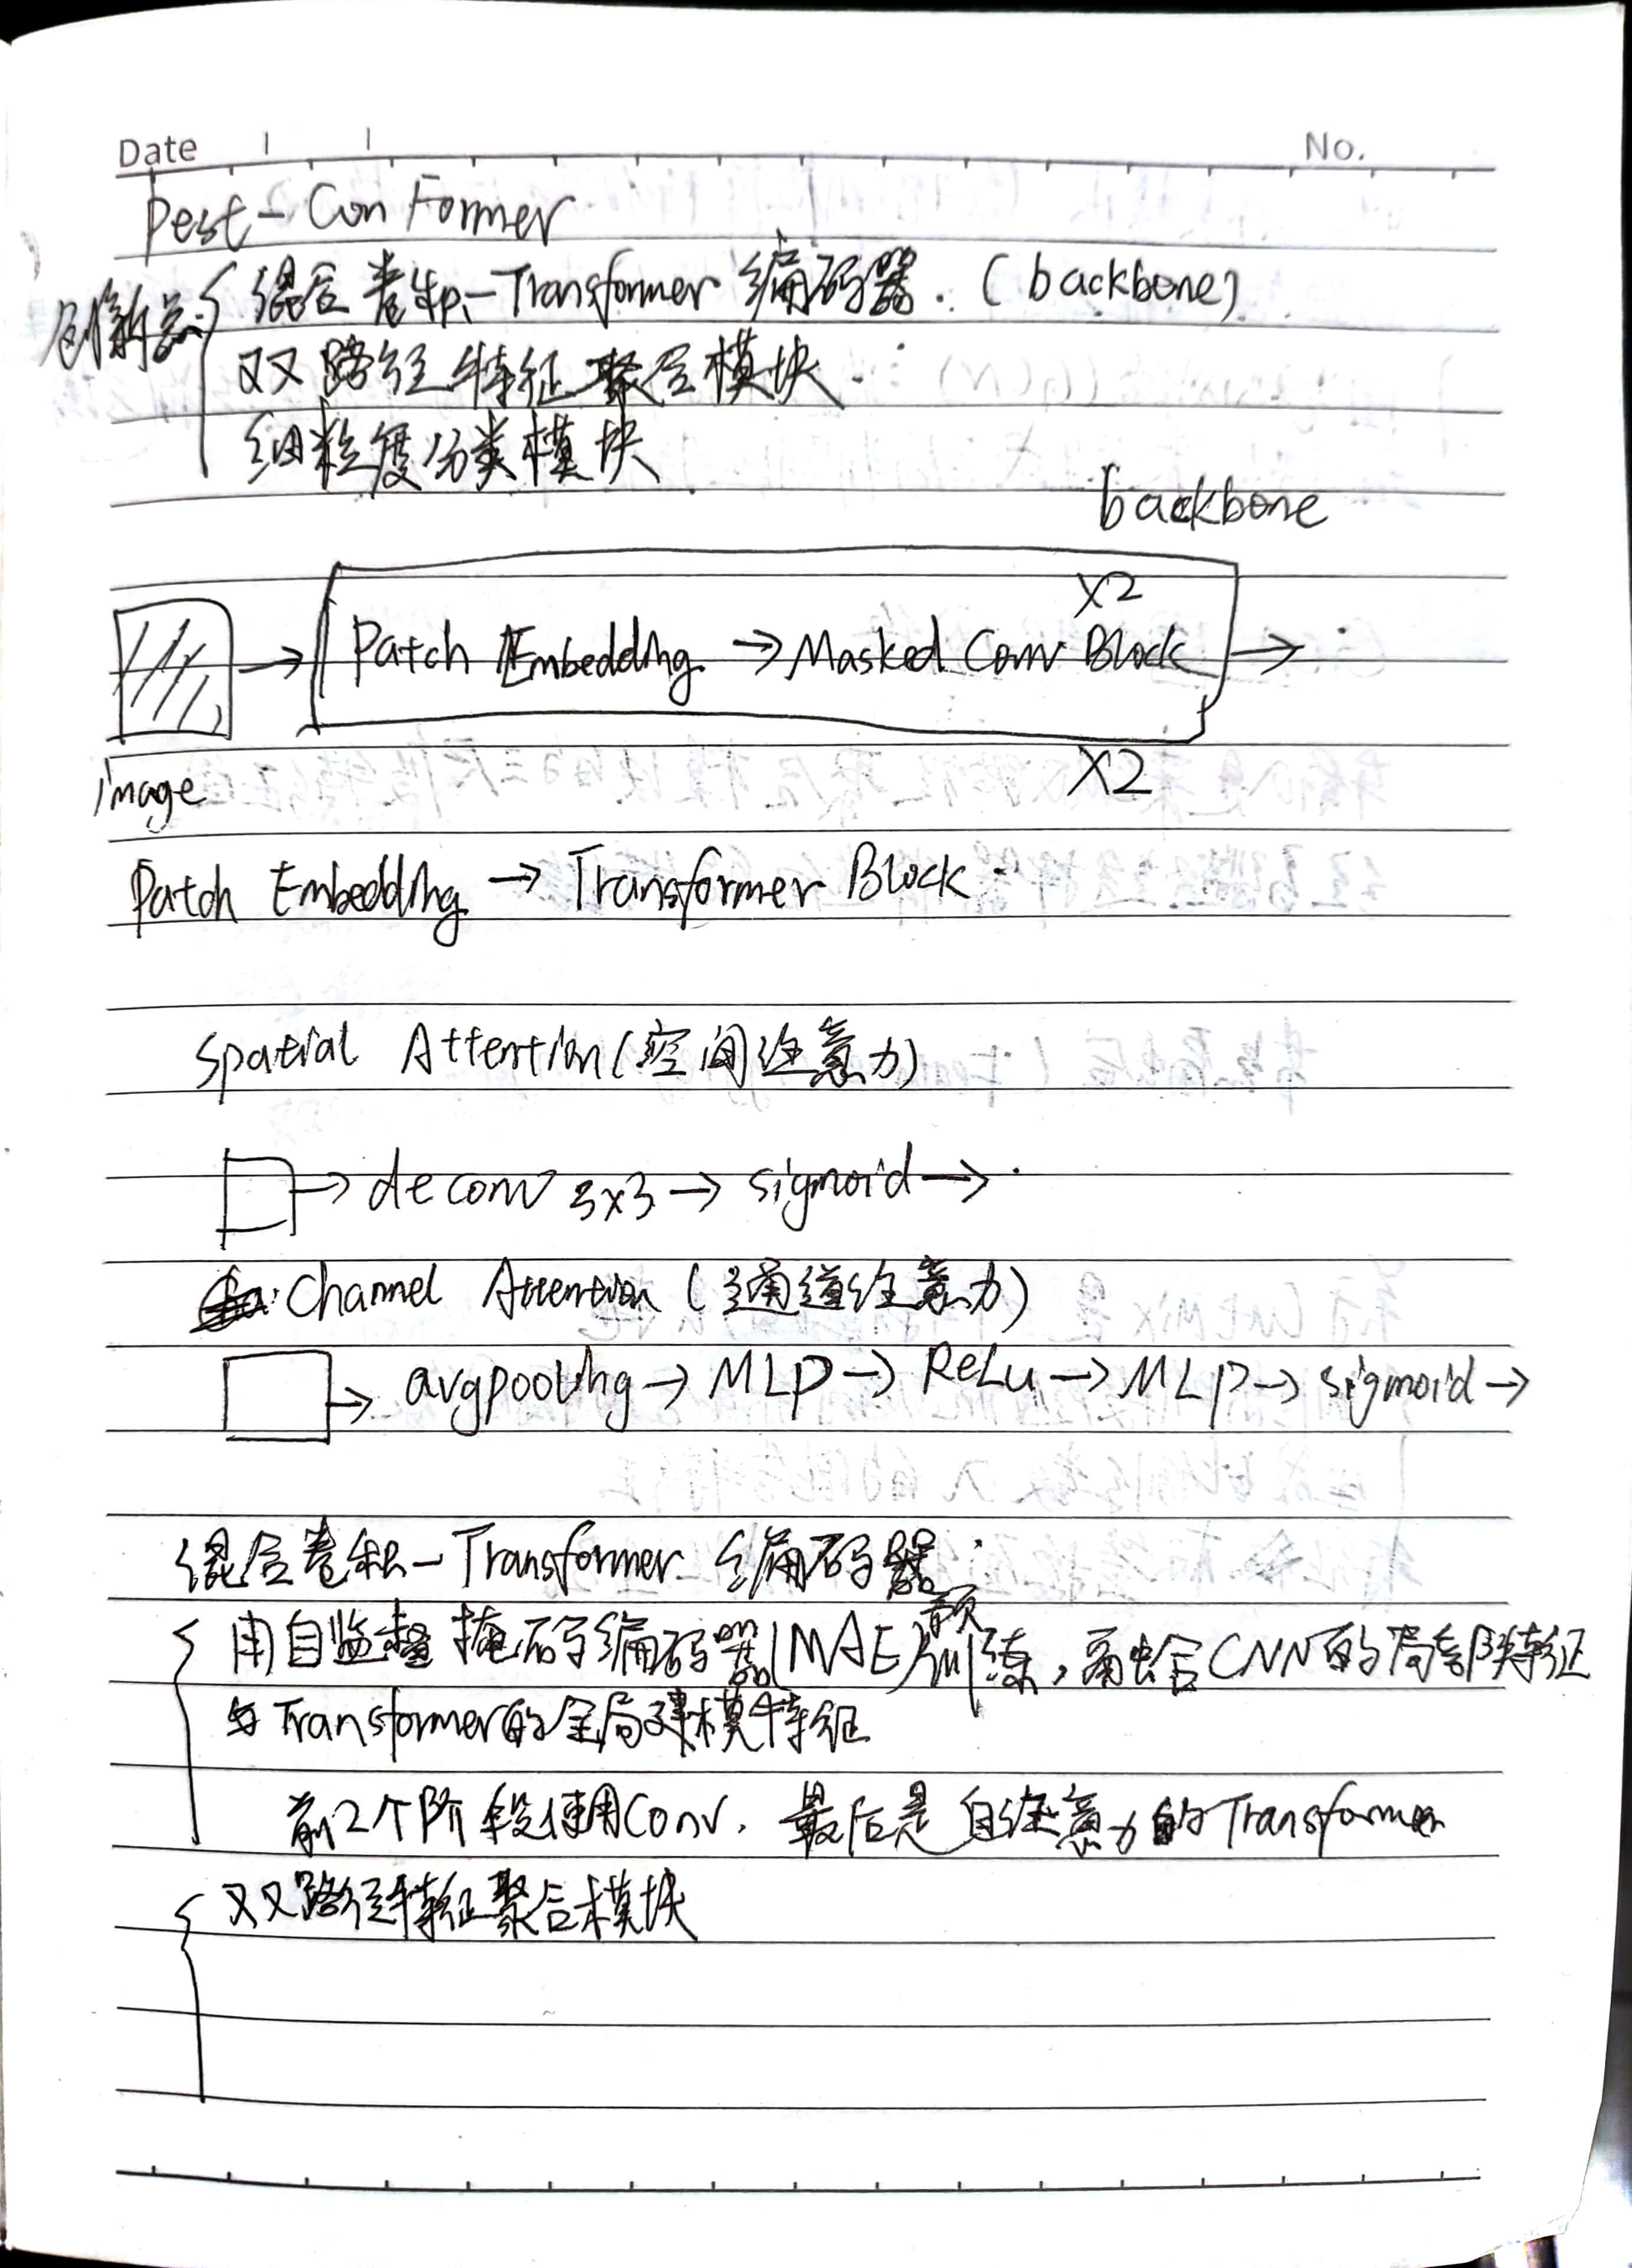 Date
No.
Pest-ConFormer
创新点:
混合卷积-Transformer 编码器.(backbone)
双路径特征聚合模块.
细粒度分类模块
backbone
X2
Patch Embedding → Masked Conv Block →
X2
image
Patch Embedding → Transformer Block
Spatial Attention(空间注意力)
→ deconv 3x3 → sigmoid →
Channel Attention (通道注意力)
→ avgpooling → MLP → ReLu → MLP → sigmoid →
混合卷积-Transformer 编码器:
用自监督掩码编码器(MAE)预训练,融合CNN的局部特征
与Transformer的全局建模特征
前2个阶段使用Conv, 最后是自注意力的Transformer
双路径特征聚合模块